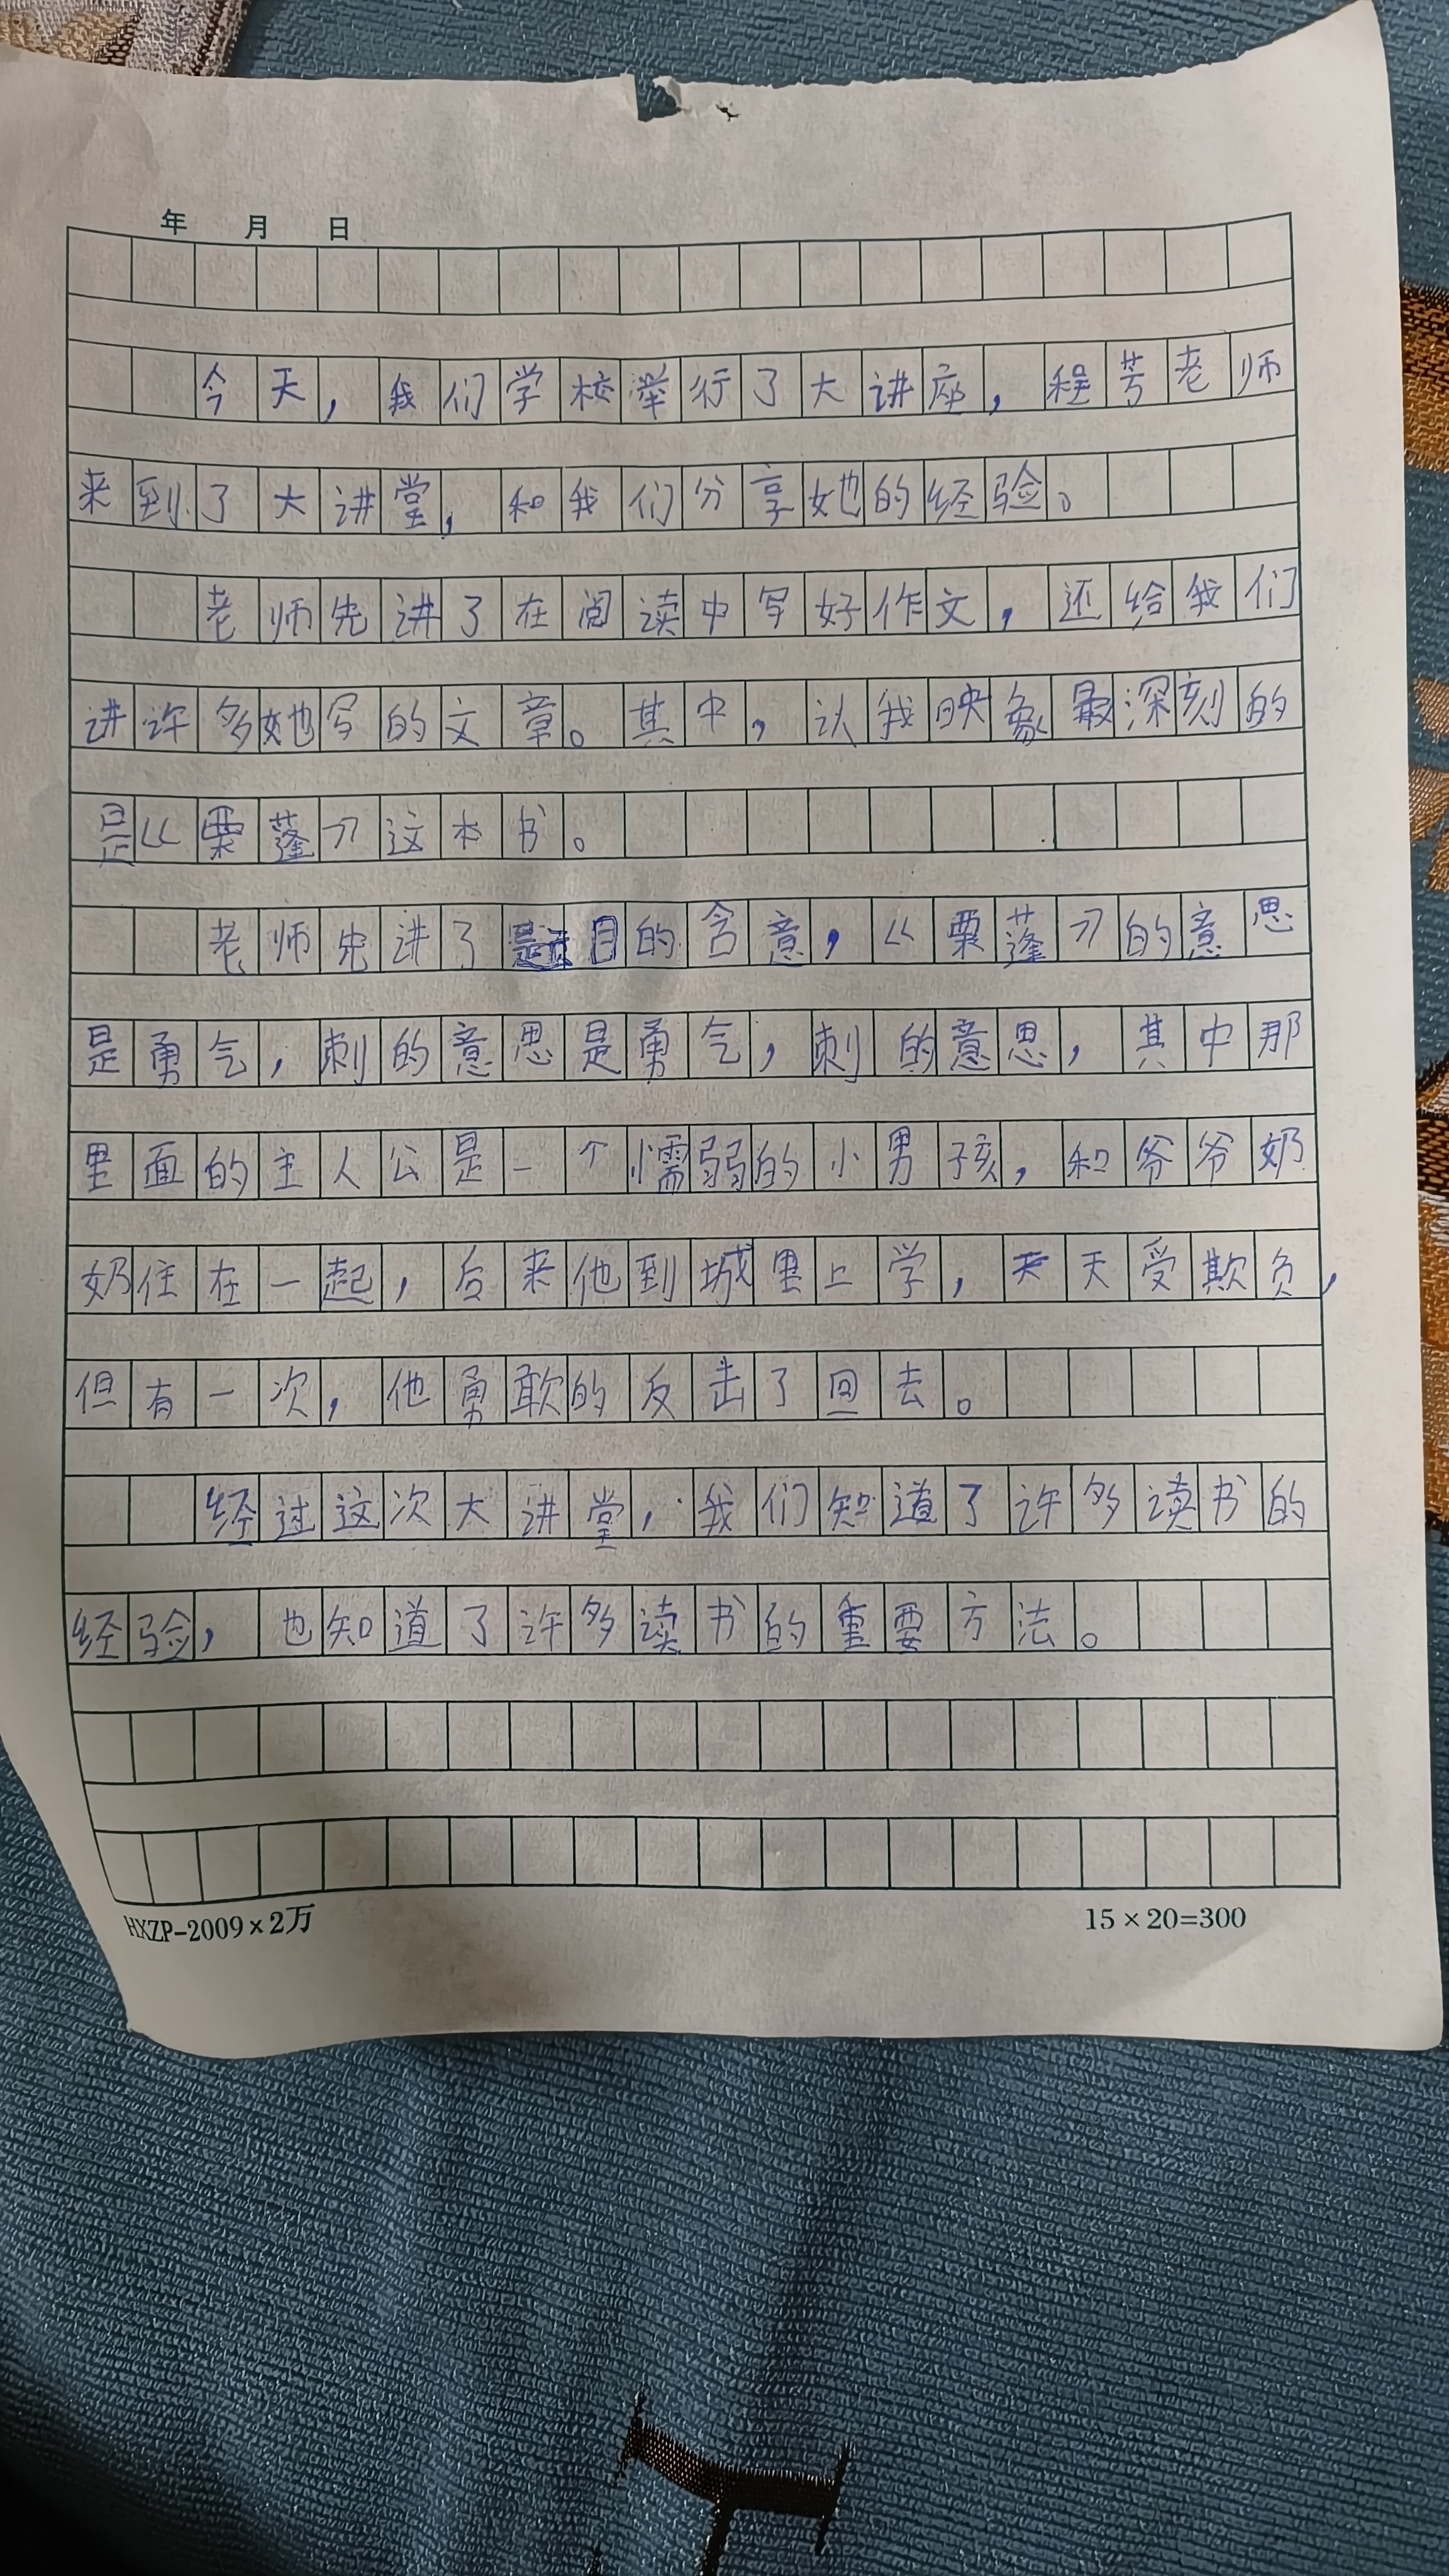 年 月 日
今天，我们学校举行了大讲座，程芳老师
来到了大讲堂，和我们分享她的经验。
老师先讲了在阅读中写好作文，还给我们
讲许多她写的文章。其中，认我映象最深刻的
是《栗蓬》这本书。
老师先讲了题目的含意，《栗蓬》的意思
是勇气，刺的意思是勇气，刺的意思，其中那
里面的主人公是一个懦弱的小男孩，和爷爷奶
奶住在一起，后来他到城里上学，天天受欺负，
但有一次，他勇敢的反击了回去。
经过这次大讲堂，我们知道了许多读书的
经验，也知道了许多读书的重要方法。
HXZP-2009×2万
15×20=300